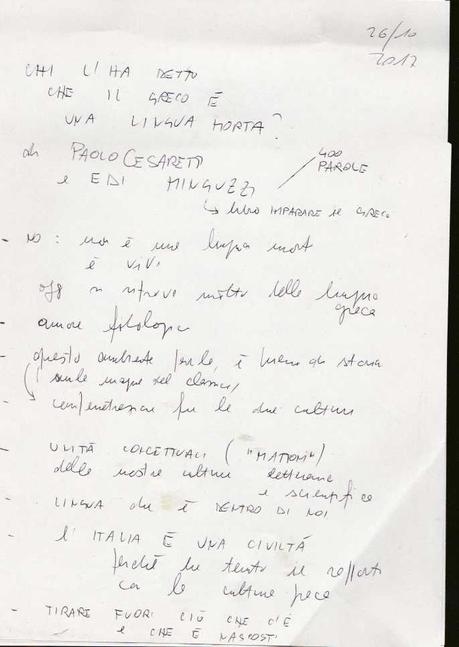 26/10
2012
CHI L'HA DETTO
CHE IL GRECO È
UNA LINGUA MORTA?
di PAOLO CESARETTI
e EDI MINGUZZI
400
PAROLE
↳ libro IMPARARE IL GRECO
- NO: non è una lingua mort
è viva
oggi si ritrova molto della lingua
greca
- amore filologia
- questo ambiente
nelle classici
compenetrazione fra le due culture
- UNITÀ CONCETTUALI ("MATTONI")
delle nostre culture letterarie
e scientifica
- LINGUA che è DENTRO DI NOI
- l'ITALIA È UNA CIVILTÀ
perché ha tenuto il rapporto
con la cultura greca
- TIRARE FUORI CIÒ CHE C'È
e CHE È NASCOSTO